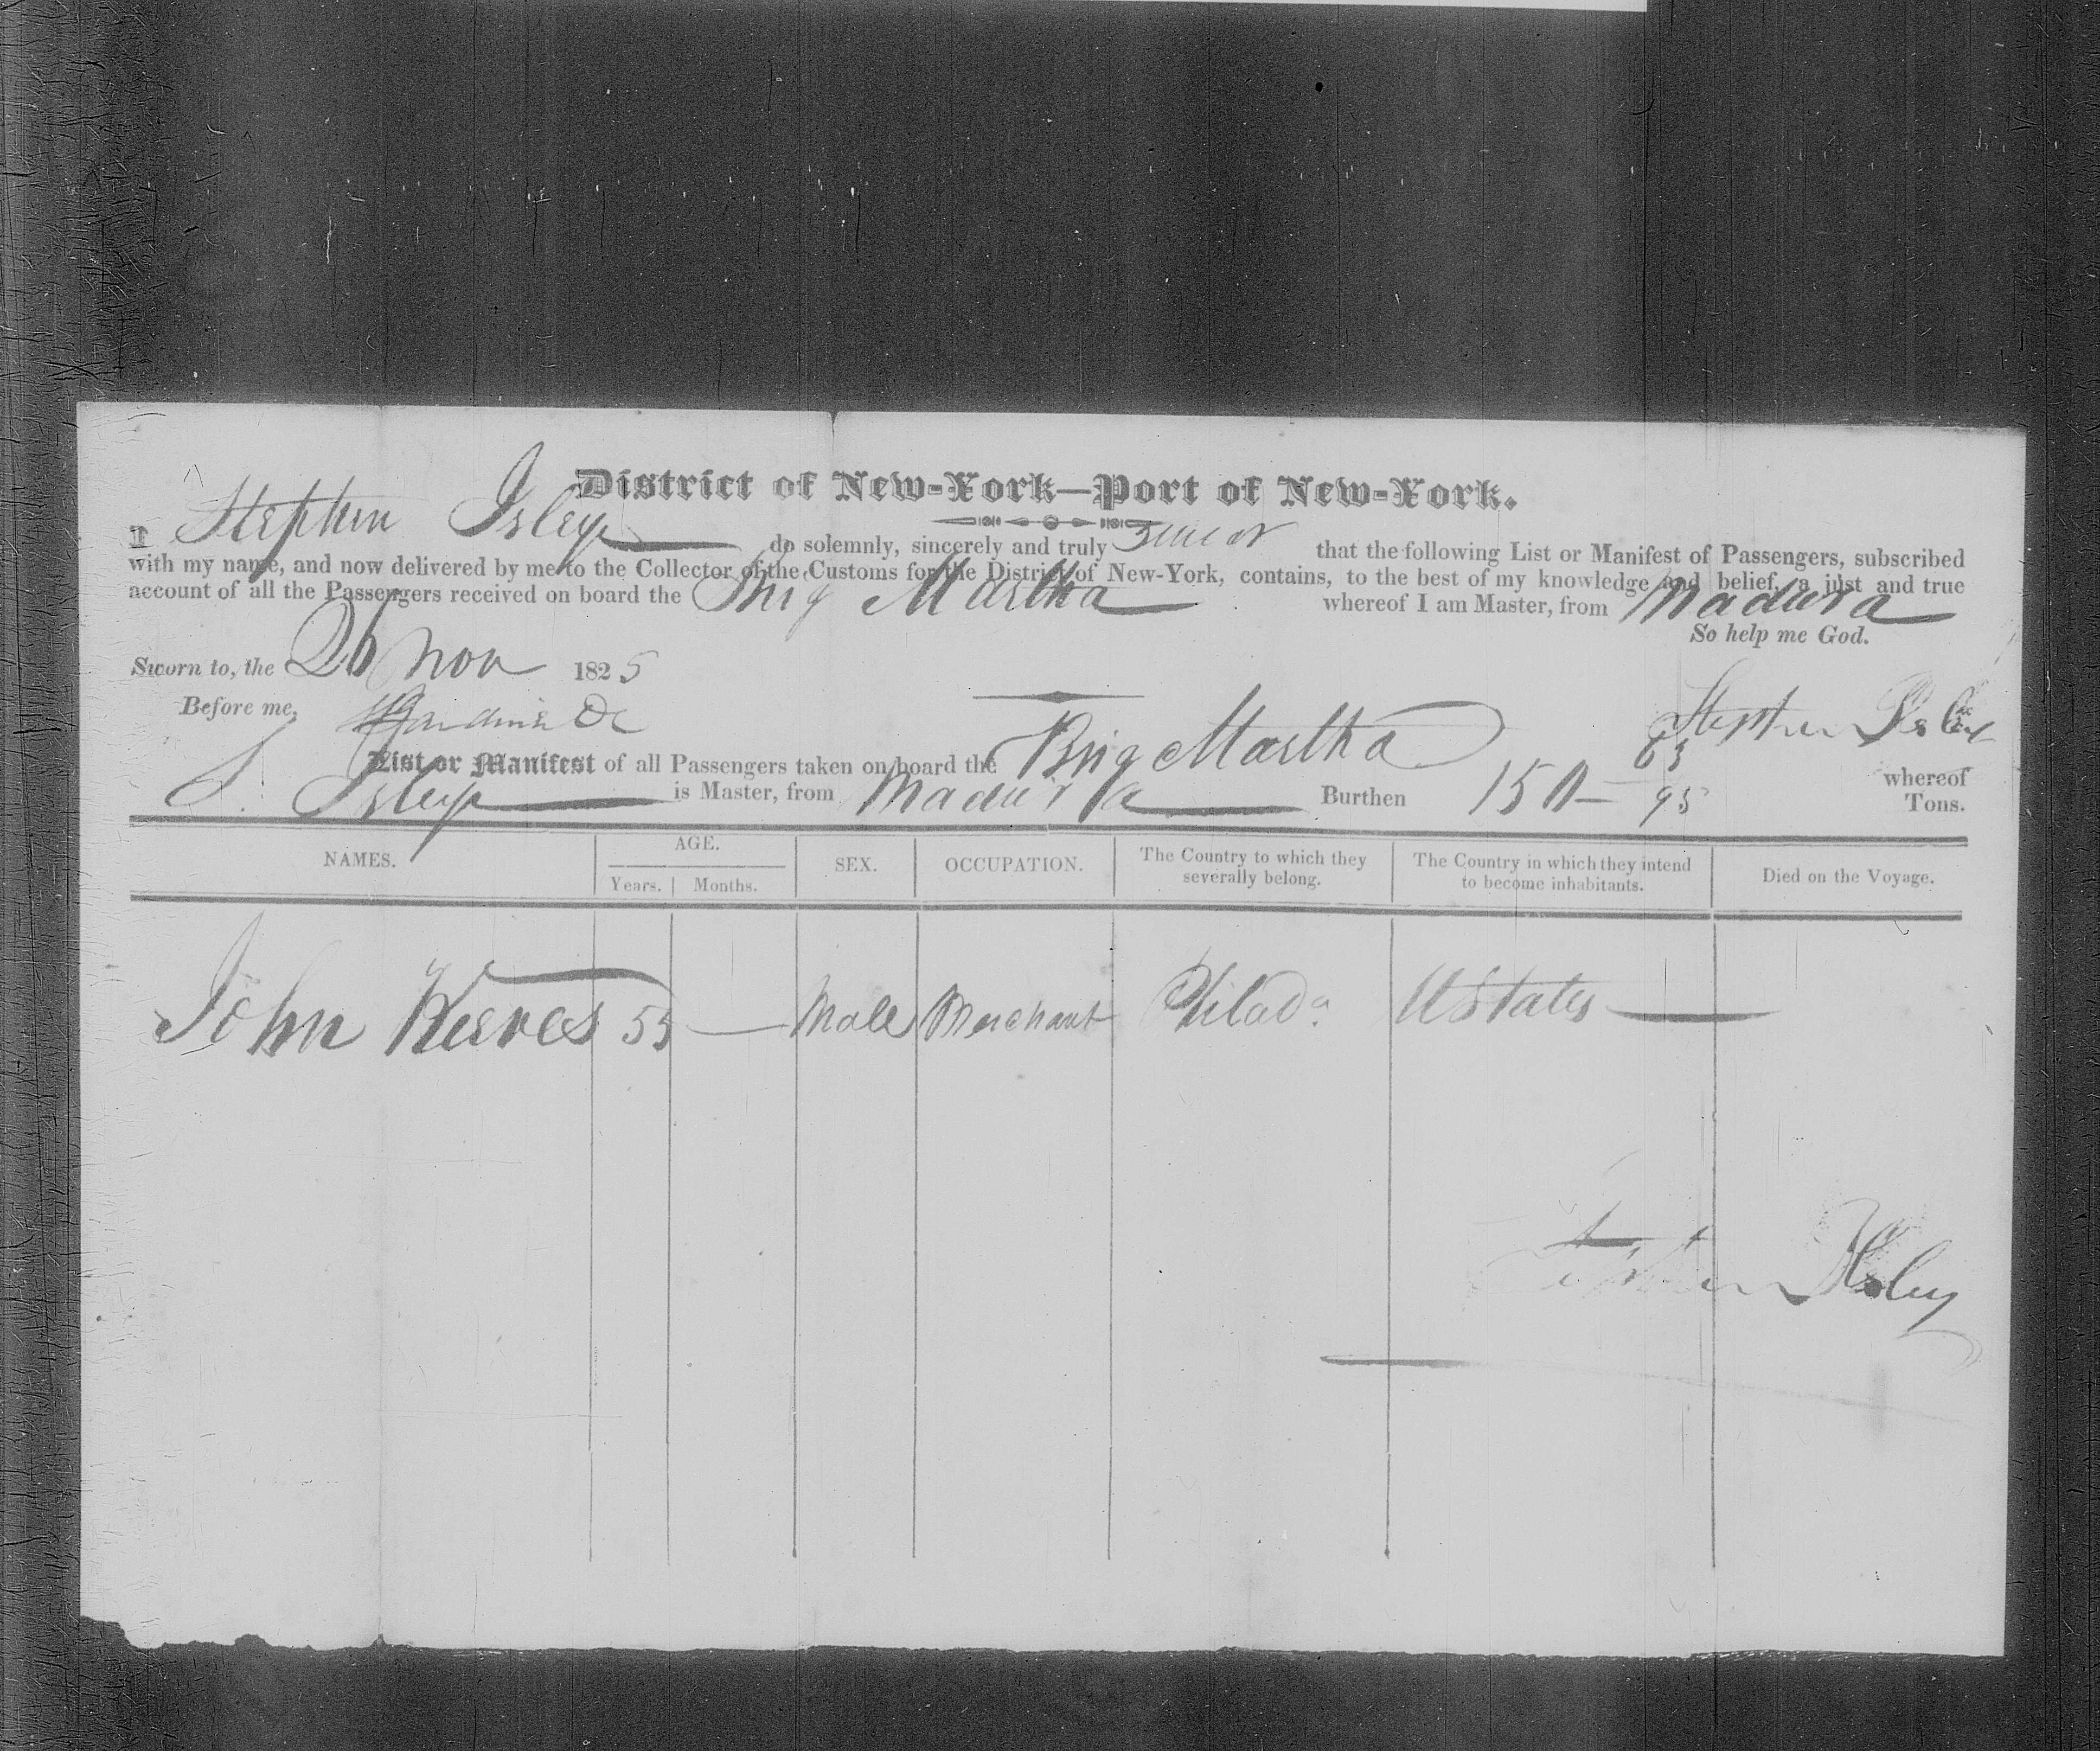 District of New-York—Port of New-York.
I Stephen Isley do solemnly, sincerely and truly swear that the following List or Manifest of Passengers, subscribed
with my name, and now delivered by me to the Collector of the Customs for the District of New-York, contains, to the best of my knowledge and belief, a just and true
account of all the Passengers received on board the Brig Martha whereof I am Master, from Madura
So help me God.
Sworn to, the 26 Nov 1825
Before me,
Stephen
List or Manifest of all Passengers taken on board the Brig Martha whereof
S. Isley is Master, from Madura Burthen 150 63/95 Tons.
NAMES. AGE. Years. Months. SEX. OCCUPATION. The Country to which they severally belong. The Country in which they intend to become inhabitants. Died on the Voyage.
John 55 — Male Merchant Philada. U States —
Isley